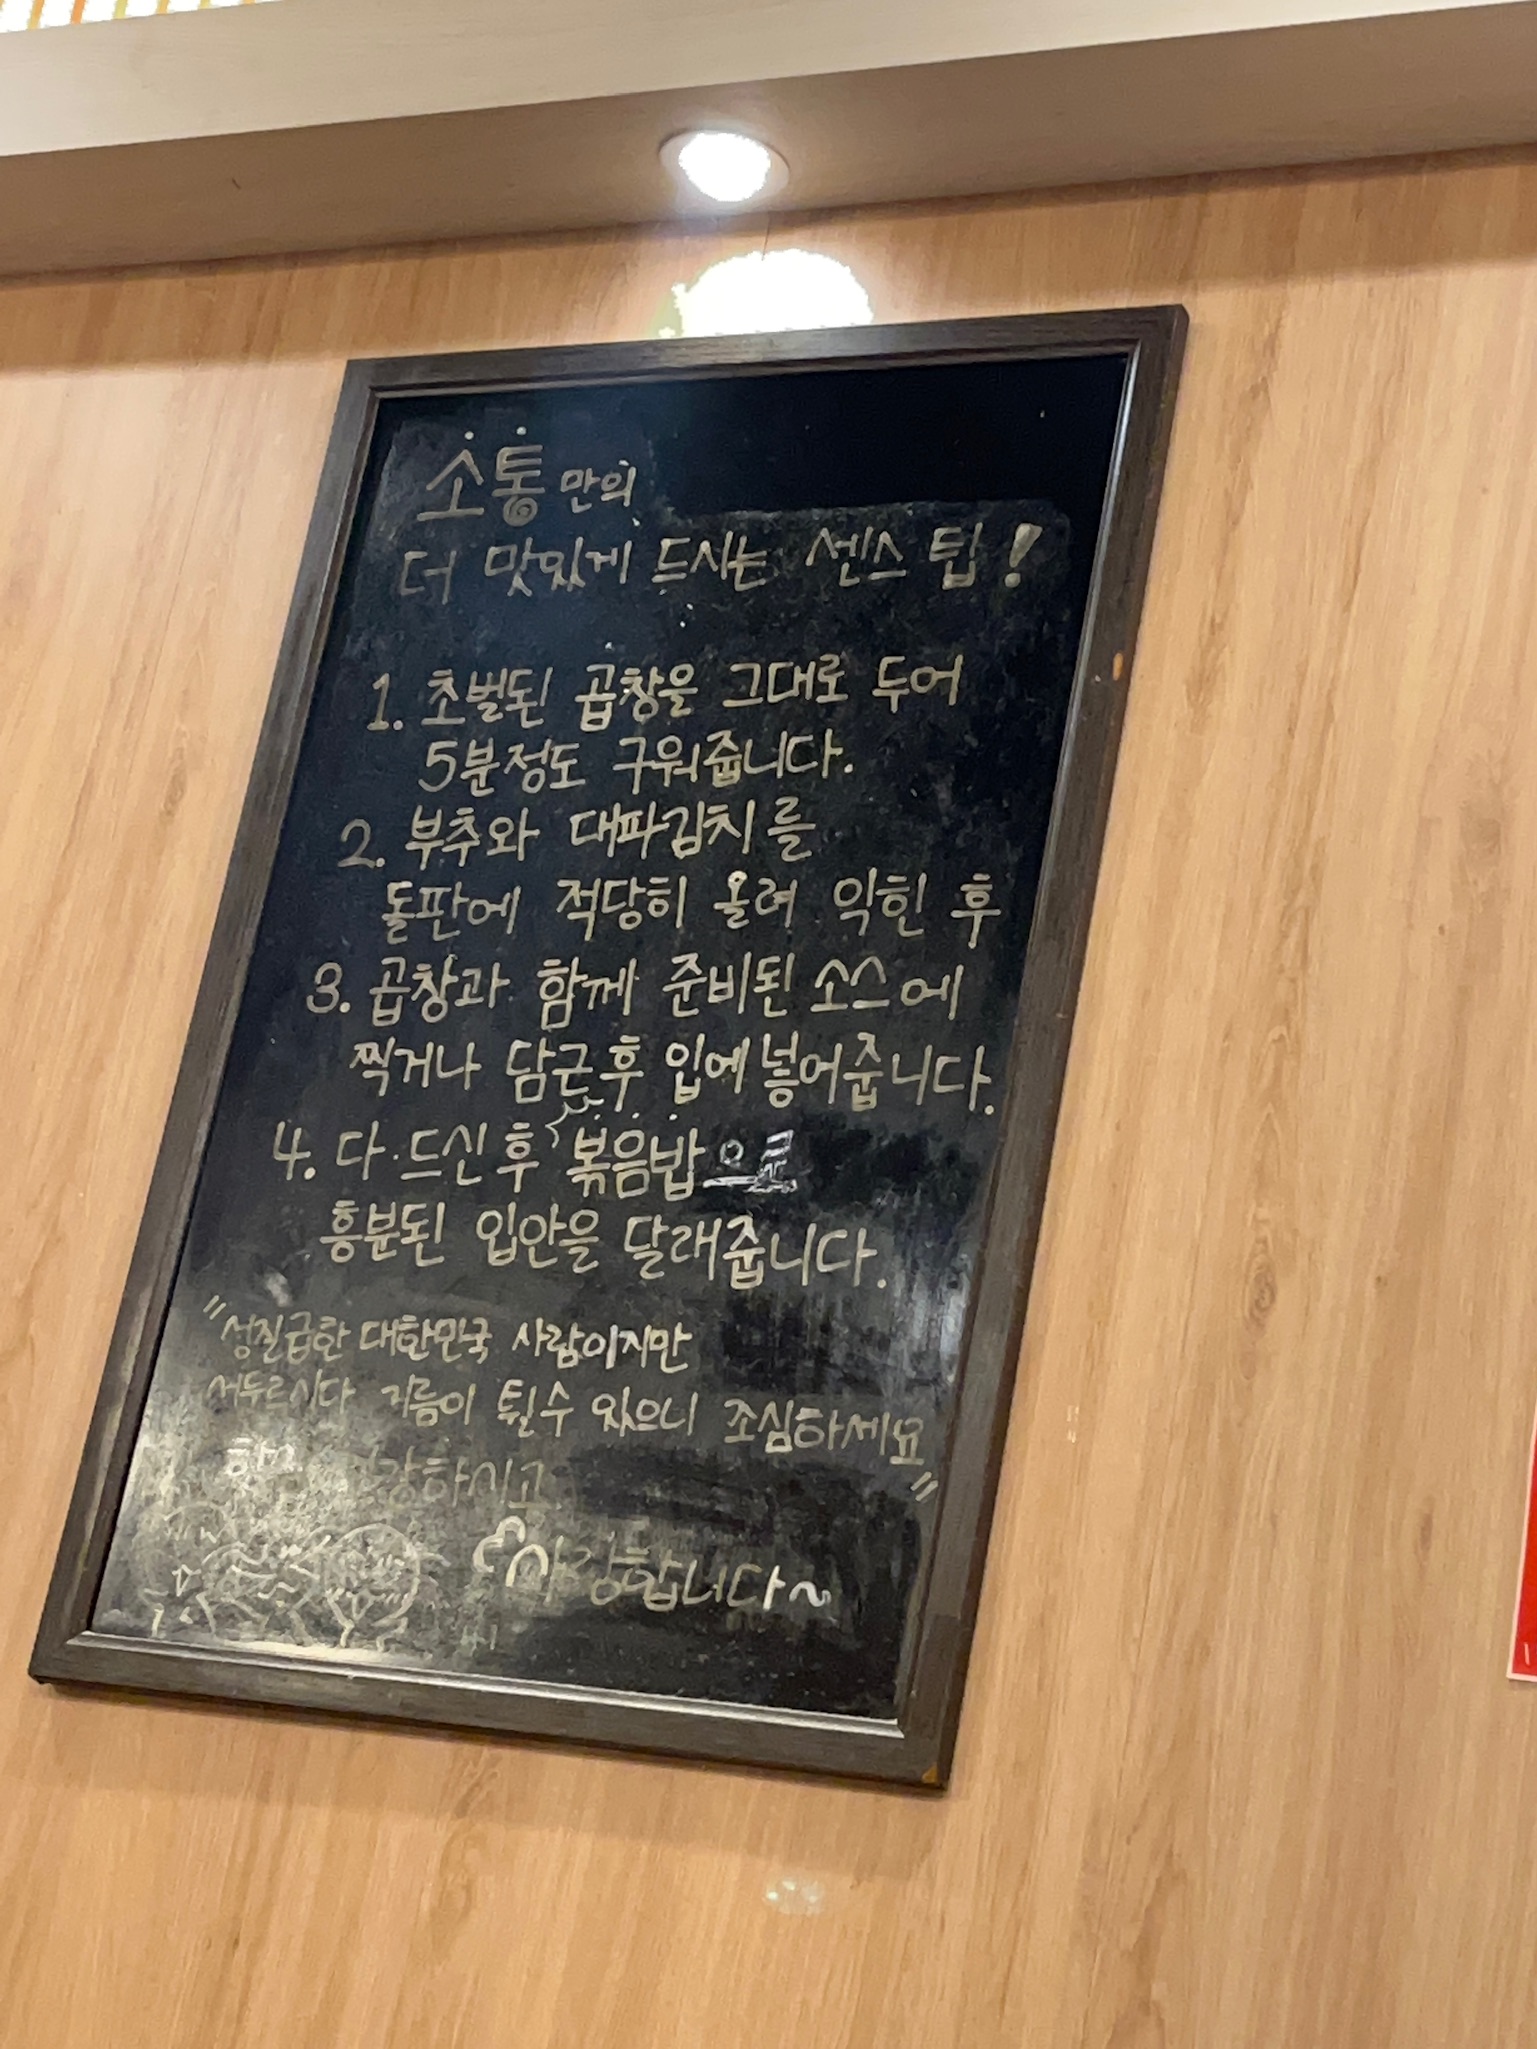 소통만의
더 맛있게 드시는 센스 팁!
1. 초벌된 곱창을 그대로 두어
5분정도 구워줍니다.
2. 부추와 대파김치를
돌판에 적당히 올려 익힌 후
3. 곱창과 함께 준비된 소스에
찍거나 담근후 입에 넣어줍니다.
4. 다 드신 후 볶음밥으로
흥분된 입안을 달래줍니다.
"성질급한 대한민국 사람이지만
서두르시다 기름이 튈수 있으니 조심하세요"
사랑합니다~